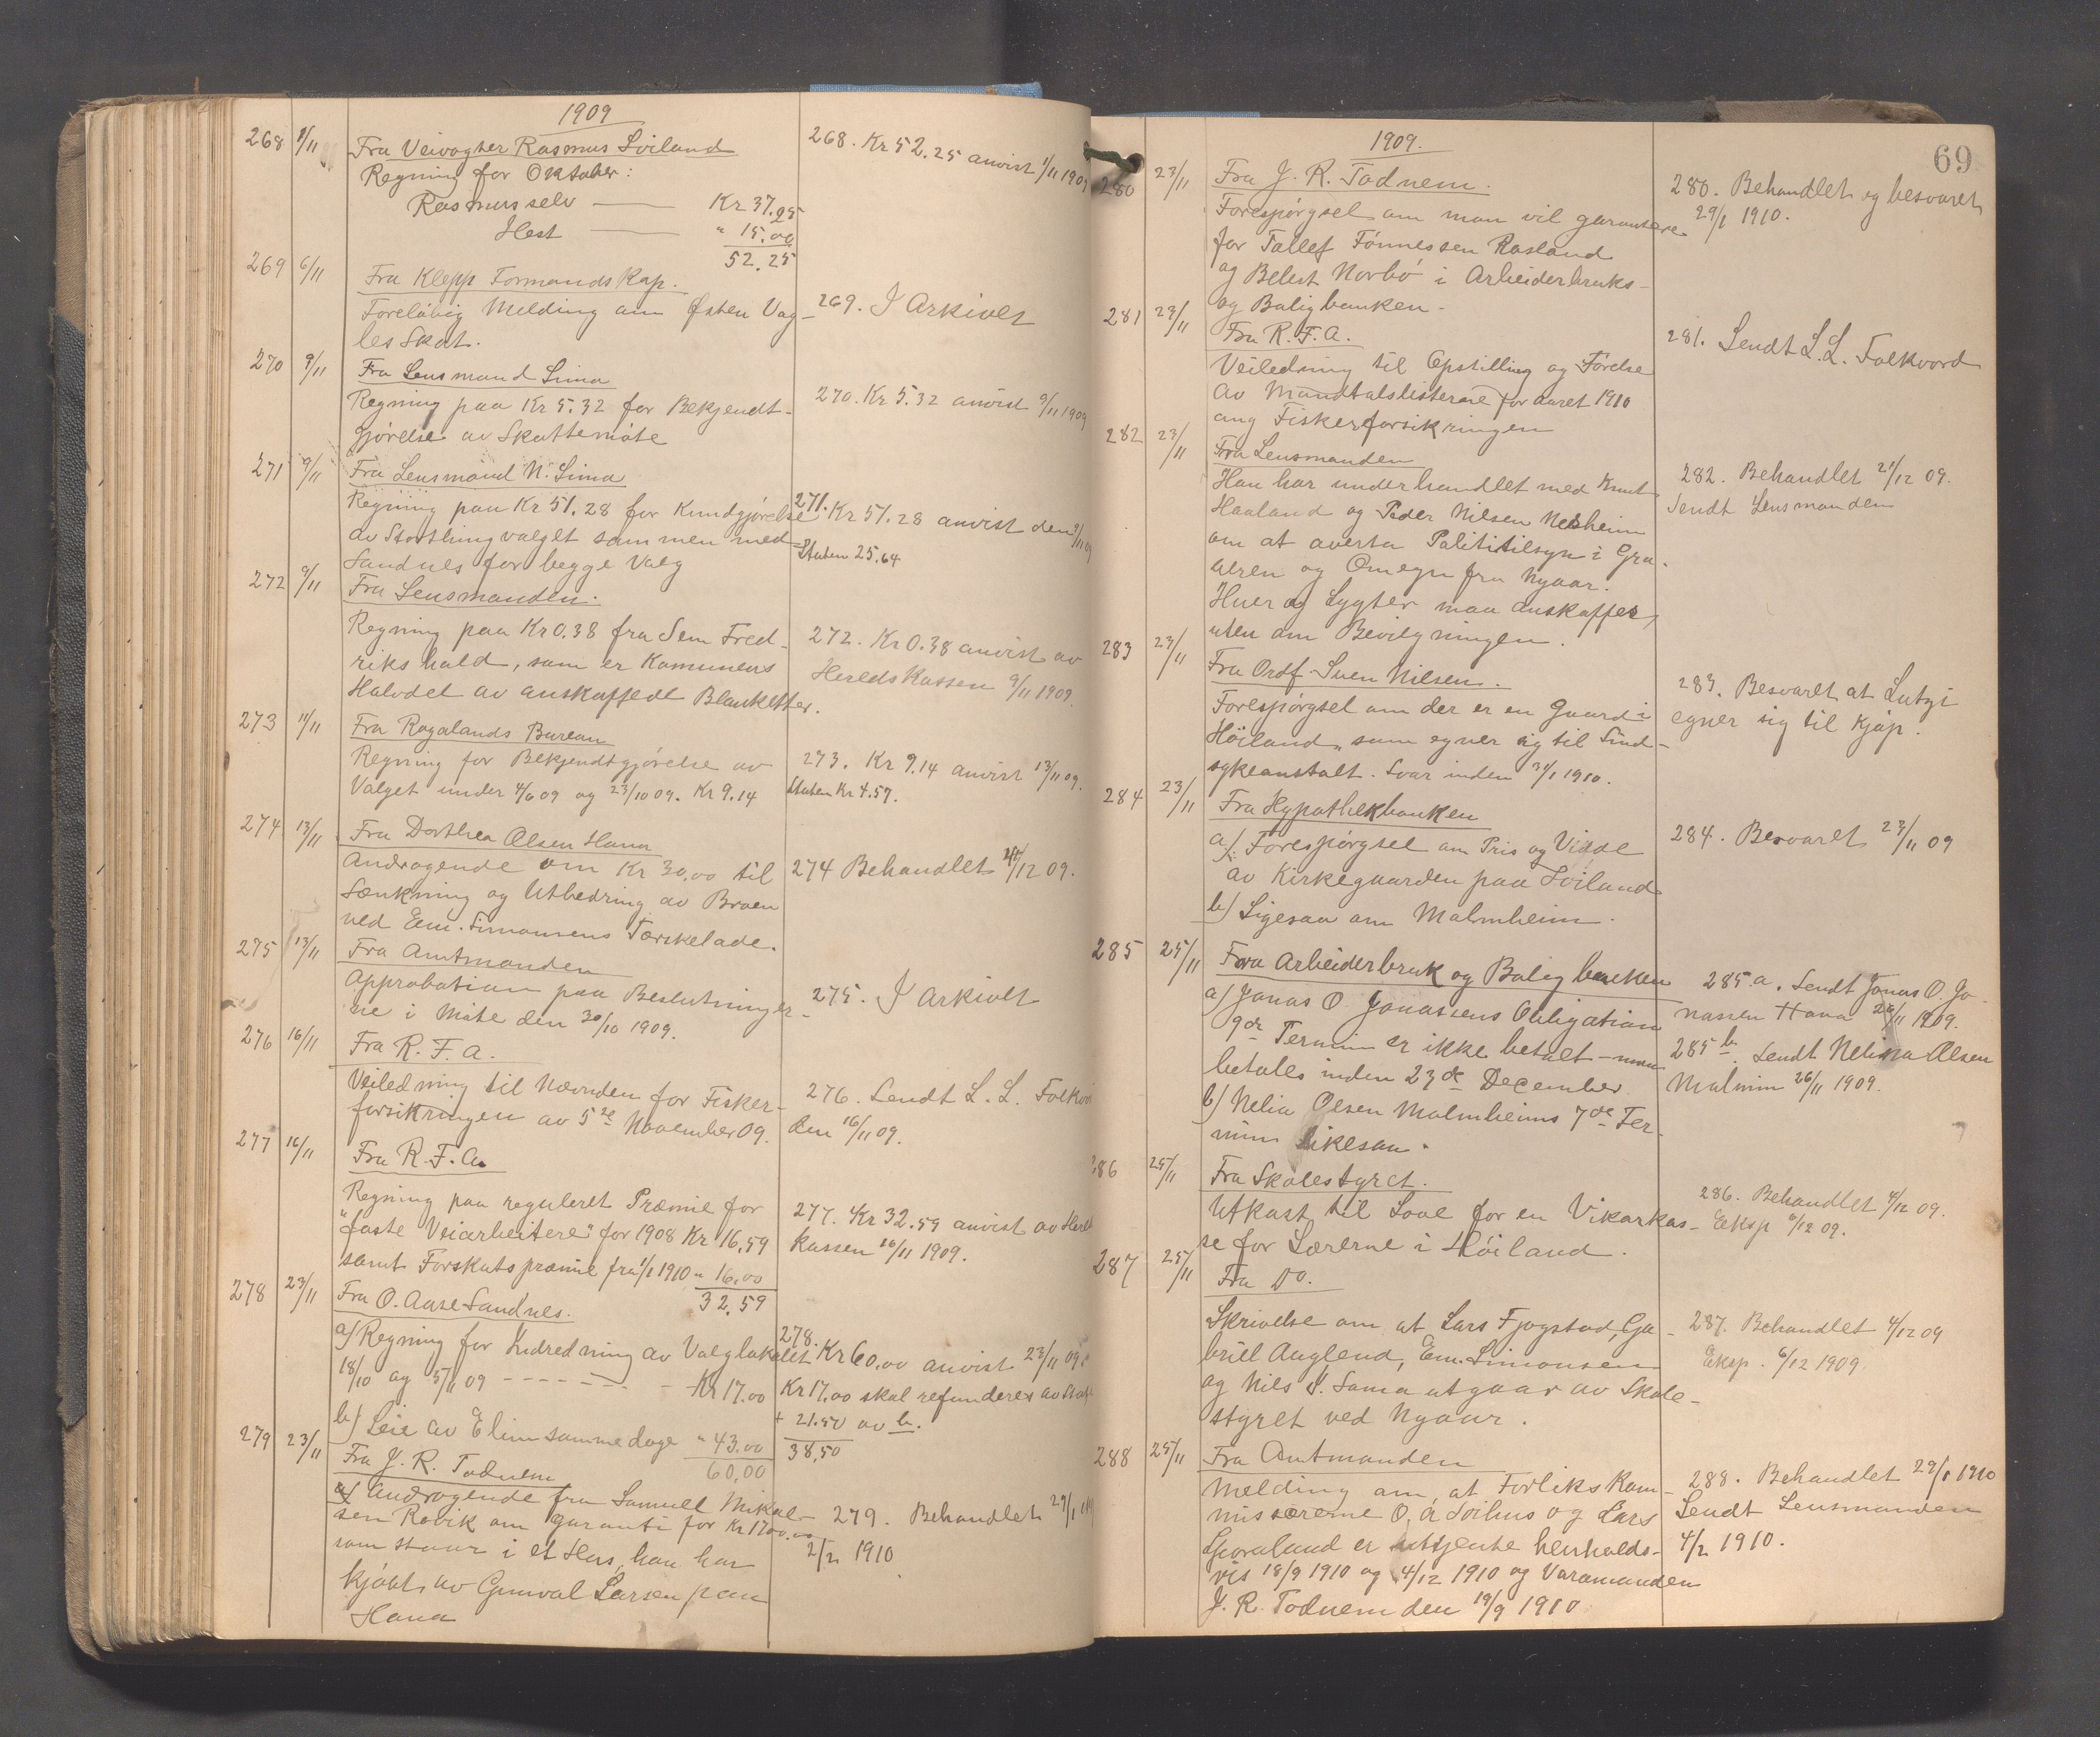 1909
268 1/11 Fra Veivogter Rasmus Soiland
Regning for Oktober:
Rasmus selv — Kr 37.25
Hest — " 15.00
52.25
268. Kr 52.25 anvist 1/11 1909
269 6/11 Fra Klepp Formandskap.
Foreløbig Melding om Østen Vag-
les Skat.
269. I Arkivet
270 9/11 Fra Lensmand Lima
Regning paa Kr 5.32 for Bekjendt-
gjørelse av Skattemøte
270. Kr 5.32 anvist 9/11 1909
271 9/11 Fra Lensmand N. Lima
Regning paa Kr 51.28 for Kundgjørelse
av Storthingvalget sammen med
Sandnes for begge Valg
271. Kr 51.28 anvist den 9/11 09
Staten 25.64
272 9/11 Fra Lensmanden.
Regning paa Kr 0.38 fra Sem Fred-
rikshald, som er Komunens
Halvdel av anskaffede Blanketter.
272. Kr 0.38 anvist av
Heredskassen 9/11 1909.
273 11/11 Fra Rogalands Bureau
Regning for Bekjendtgjørelse av
Valget under 4/6 09 og 23/10 09. Kr 9.14
273. Kr 9.14 anvist 13/11 09.
Staten Kr 4.57.
274 13/11 Fra Dorthea Olsen Hana
Andragende om Kr 30,00 til
Sænkning og Utbedring av Broen
ved Em. Simonsens Tærskelade.
274 Behandlet /12 09.
275 13/11 Fra Amtmanden
Approbation paa Beslutninger-
ne i Møte den 30/10 1909.
275. I Arkivet
276 16/11 Fra R. F. A.
Veiledning til Nævnden for Fisker-
forsikringen av 5te November 09.
276. Sendt L. L. Folkvo
den 16/11 09.
277 16/11 Fra R. F. A.
Regning paa reguleret Præmie for
"faste Veiarbeitere" for 1908 Kr 16,59
samt Forskutspræmie fra 1/1 1910 " 16,00
32,59
277. Kr 32.59 anvist av Hered
kassen 16/11 1909.
278 23/11 Fra O. Aase Sandnes.
a) Regning for Indredning av Valglokalet
18/10 og 5/11 09 - - - - - - - Kr 17.00
b) Leie av Elim samme dage " 43.00
60,00
278. Kr 60,00 anvist 23/11 09
Kr 17,00 skal refunderes av Stat
+ 21.50 av b.
38,50
279 23/11 Fra J. R. Todnem
a) Andragende fra Samuel Mikal-
sen Rovik om garanti for Kr 1700.00
som staar i et Hus, han har
kjøbt av Gunval Larsen paa
Hana
279. Behandlet 29/1
2/2 1910
69
1909.
280 23/11 Fra J. R. Todnem.
Forespørgsel om man vil garantere
for Tallef Tønnessen Rosland
og Belest Norbø i Arbeiderbruks-
og Boligbanken.
280. Behandlet og besvaret
29/1 1910.
281 23/11 Fra R. F. A.
Veiledning til Opstilling og Førelse
av Mandtalslisterne for aaret 1910
ang Fiskerforsikringen
281. Sendt L. L. Folkvord
282 23/11 Fra Lensmanden
Han har underhandlet med Knut
Haaland og Peder Nilsen Nesheim
om at averta Polititilsyn i Gra-
aren og Omegn fra Nyaar.
Huer og Lygter maa anskaffes,
uten om Bevilgningen.
282. Behandlet 21/12 09.
Sendt Lensmanden
283 23/11 Fra Ordf. Sven Nilsen.
Forespørgsel om der er en Gaard i
Høiland, som egner sig til Sind-
sykeanstalt. Svar inden 31/1 1910.
283. Besvaret at Lutsi
egner sig til Kjøp.
284 23/11 Fra Hypothekbanken
a) Forespørgsel om Pris og Vidde
av Kirkegaarden paa Soiland
b) Ligesaa om Malmheim.
284. Besvaret 23/11 09
285 25/11 Fra Arbeiderbruk og Boligbanken
a) Jonas O. Jonassens Obligation
9de Termin er ikke betalt – maa
betales inden 23de December
b) Nelia Olsen Malmheims 7de Ter-
min likesaa.
285.a. Sendt Jonas O. Jo-
nassen Hana 26/11 1909.
285 b. Sendt Nelina Olsen
Malmin 26/11 1909.
286 25/11 Fra Skolestyret.
Utkast til Love for en Vikarkas-
se for Lærerne i Høiland.
286. Behandlet 4/12 09.
Eksp 6/12 09.
287 25/11 Fra Do.
Skrivelse om at Lars Fjogstad, Ga-
briel Auglend, Em. Simonsen
og Nils S. Soma utgaar av Skole-
styret ved Nyaar.
287. Behandlet 4/12 09
Eksp. 6/12 1909
288 25/11 Fra Amtmanden
Melding om at Forlikskom-
missærerne O. A. Soihus og Lars
Skjoraland er uttjente henholds-
vis 18/9 1910 og 4/12 1910 og Varamanden
J. R. Todnem den 19/9 1910
288. Behandlet 29/1 1910
Sendt Lensmanden
4/2 1910.